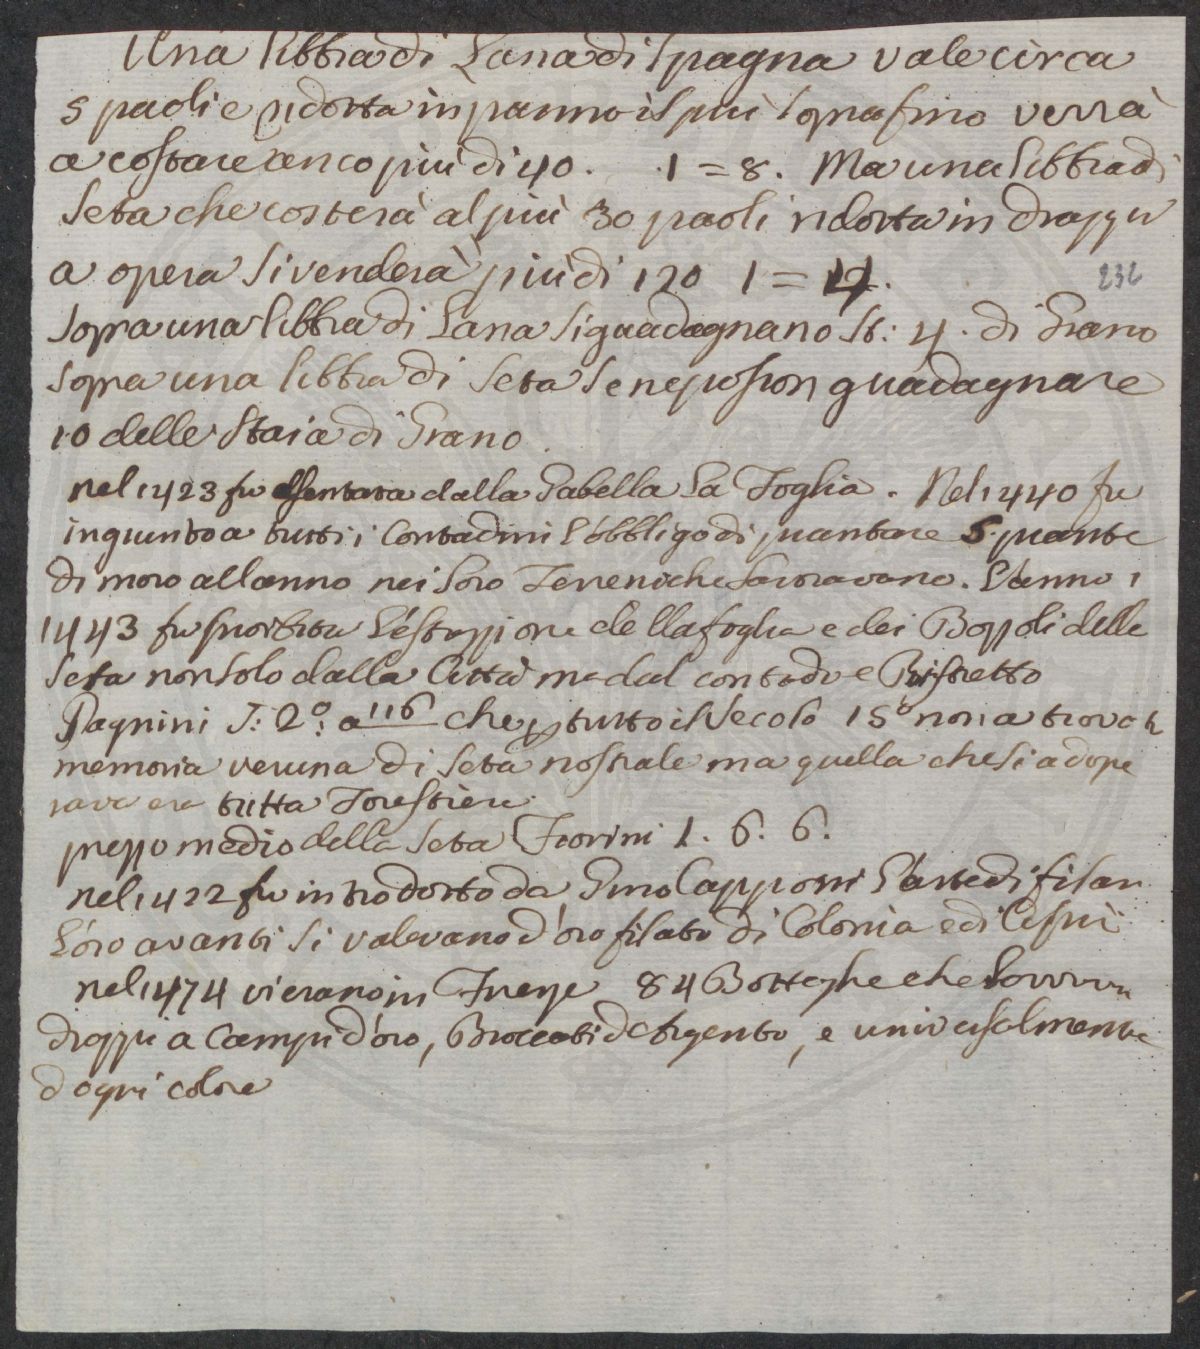 Una libbra di Lana di Spagna vale circa
5 paoli e ridotta in panno il piu soprafino verrà
a costare anco più di 40. 1 = 8. Ma una libbra di
Seta che costerà al più 30 paoli ridotta in drappi
a opera si venderà più di 120 1 = 4.
232
Sopra una libbra di Lana si guadagnano St: 4. di Grano
Sopra una libbra di Seta se ne posson guadagnare
10 delle Staia di Grano
nel 1423 fu esentata dalla Gabella la Foglia. Nel 1440 fu
ingiunto a tutti i Contadini l'obbligo di piantare 5 piante
di moro all anno nei loro Terreni che lavoravano. L'anno
1443 fu proibita l'estrazione della foglia e dei Bozzoli della
Seta non solo dalla Città ma dal contado e Distretto
Pagnini T: 2º. a 116 che p tutto il Secolo 15º non a trovato
memoria veruna di Seta nostrale ma quella che si adope
rava era tutta Forestiera
prezzo medio della Seta Fiorini 1. 6. 6.
nel 1422 fu introdotto da Gino Capponi l'arte di filar
l'oro avanti si valevano d'oro filato di Colonia e di Cipri
nel 1474 vi erano in Firenze 84 Botteghe che
drappi a Campi d'oro, Broccati d'Argento, e universalmente
d ogni colore